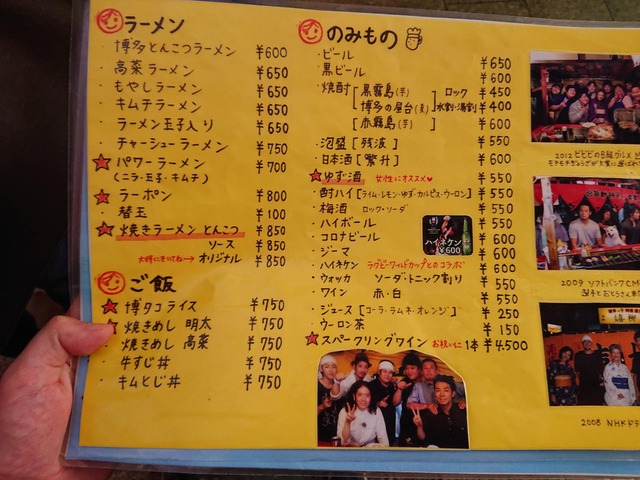 ラーメン
・博多とんこつラーメン ¥600
・高菜ラーメン ¥650
・もやしラーメン ¥650
・キムチラーメン ¥650
・ラーメン玉子入り ¥650
・チャーシューラーメン ¥750
パワーラーメン ¥700
(ニラ・玉子・キムチ)
ラーポン ¥800
・替玉 ¥100
焼きラーメン とんこつ ¥850
ソース ¥850
オリジナル ¥850
ご飯
博タコライス ¥750
焼きめし 明太 ¥750
焼きめし 高菜 ¥750
・牛すじ丼 ¥750
・キムとじ丼 ¥750
のみもの
・ビール ¥650
・黒ビール ¥600
・焼酎 [黒霧島(芋) ロック ¥450
博多の屋台(麦) 水割・湯割 ¥400
[赤霧島(芋)] ¥600
・泡盛[残波] ¥550
・日本酒[繁升] ¥600
ゆず酒 女性にオススメ♥ ¥550
・酎ハイ[ライム・レモン・ゆず・カルピス・ウーロン] ¥550
・梅酒 ロック・ソーダ ¥550
・ハイボール ¥550
・コロナビール ¥600
・ジーマ ¥600
・ハイネケン ラグビーワールドカップとのコラボ ¥600
・ウォッカ ソーダ・トニック割り ¥550
・ワイン 赤・白 ¥550
・ジュース[コーラ・ラムネ・オレンジ] ¥250
・ウーロン茶 ¥150
スパークリングワイン お祝いに 1本 ¥4.500
ハイネケン
¥600
2009 ソフトバンクCM
2008 NHKドラ